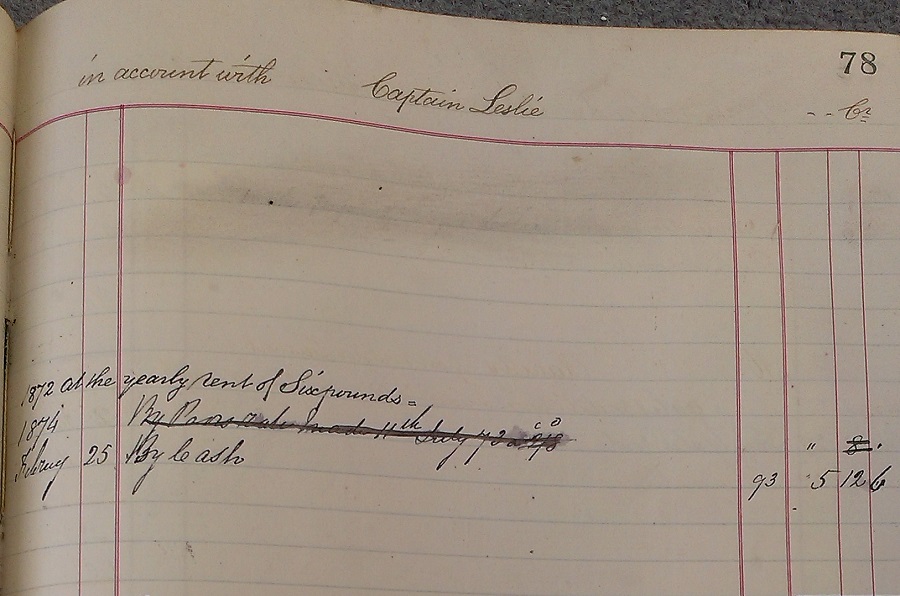 78
in account with Captain Leslie - - Cr
1872 at the yearly rent of Sixpounds =
1874 By Poors rate made 11th July 72 " 8 "
Febry 25 By Cash 93 5 12 6